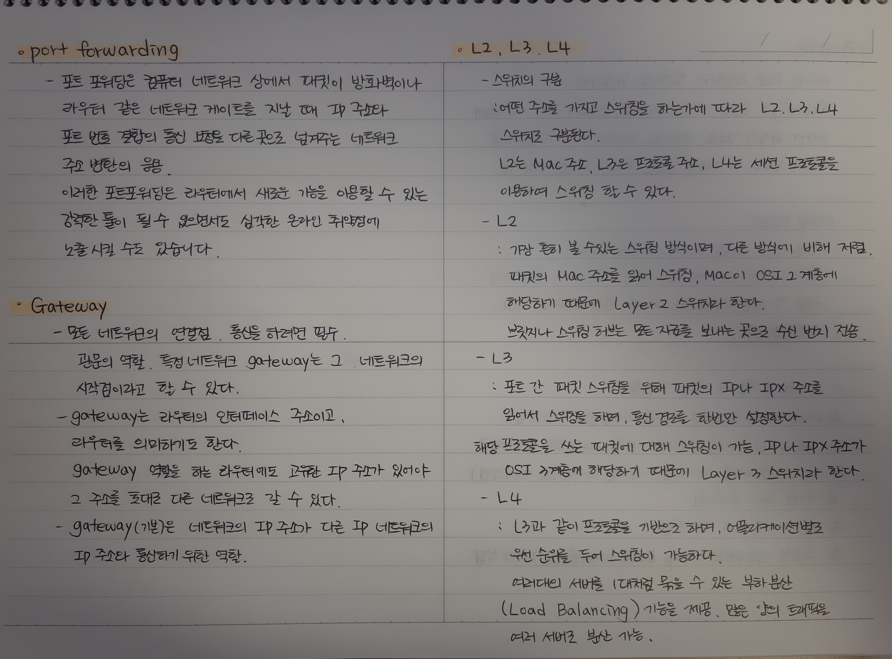 port forwarding
- 포트 포워딩은 컴퓨터 네트워크 상에서 패킷이 방화벽이나
라우터 같은 네트워크 게이트를 지날 때 IP 주소와
포트 번호 결합의 통신 요청을 다른 곳으로 넘겨주는 네트워크
주소 변환의 응용.
이러한 포트포워딩은 라우터에서 새로운 기능을 이용할 수 있는
강력한 툴이 될 수 있으면서도 심각한 온라인 취약점에
노출 시킬 수도 있습니다.
Gateway
- 모든 네트워크의 연결점. 통신을 하려면 필수.
관문의 역할. 특정 네트워크 gateway는 그 네트워크의
시작점이라고 할 수 있다.
- gateway는 라우터의 인터페이스 주소이고,
라우터를 의미하기도 한다.
gateway 역할을 하는 라우터에도 고유한 IP 주소가 있어야
그 주소를 토대로 다른 네트워크로 갈 수 있다.
- gateway(기본)은 네트워크의 IP 주소가 다른 IP 네트워크의
IP 주소와 통신하기 위한 역할.
L2, L3, L4
- 스위치의 구분
: 어떤 주소를 가지고 스위칭을 하는가에 따라 L2, L3, L4
스위치로 구분된다.
L2는 Mac 주소, L3은 프로토콜 주소, L4는 세션 프로토콜을
이용하여 스위칭 할 수 있다.
- L2
: 가장 흔히 볼 수있는 스위칭 방식이며, 다른 방식에 비해 저렴.
패킷의 Mac 주소를 읽어 스위칭, Mac이 OSI 2계층에
해당하기 때문에 Layer 2 스위치라 한다.
브릿지나 스위칭 허브는 모든 자료를 보내는 곳으로 수신 번지 전송.
- L3
: 포트 간 패킷 스위칭을 위해 패킷의 IP나 IPX 주소를
읽어서 스위칭을 하며, 통신 경로를 한번만 설정한다.
해당 프로토콜을 쓰는 패킷에 대해 스위칭이 가능, IP나 IPX 주소가
OSI 3계층에 해당하기 때문에 Layer 3 스위치라 한다.
- L4
: L3과 같이 프로토콜을 기반으로 하며, 어플리케이션별로
우선 순위를 두어 스위칭이 가능하다.
여러대의 서버를 1대처럼 묶을 수 있는 부하 분산
(Load Balancing) 기능을 제공. 많은 양의 트래픽을
여러 서버로 분산 가능.